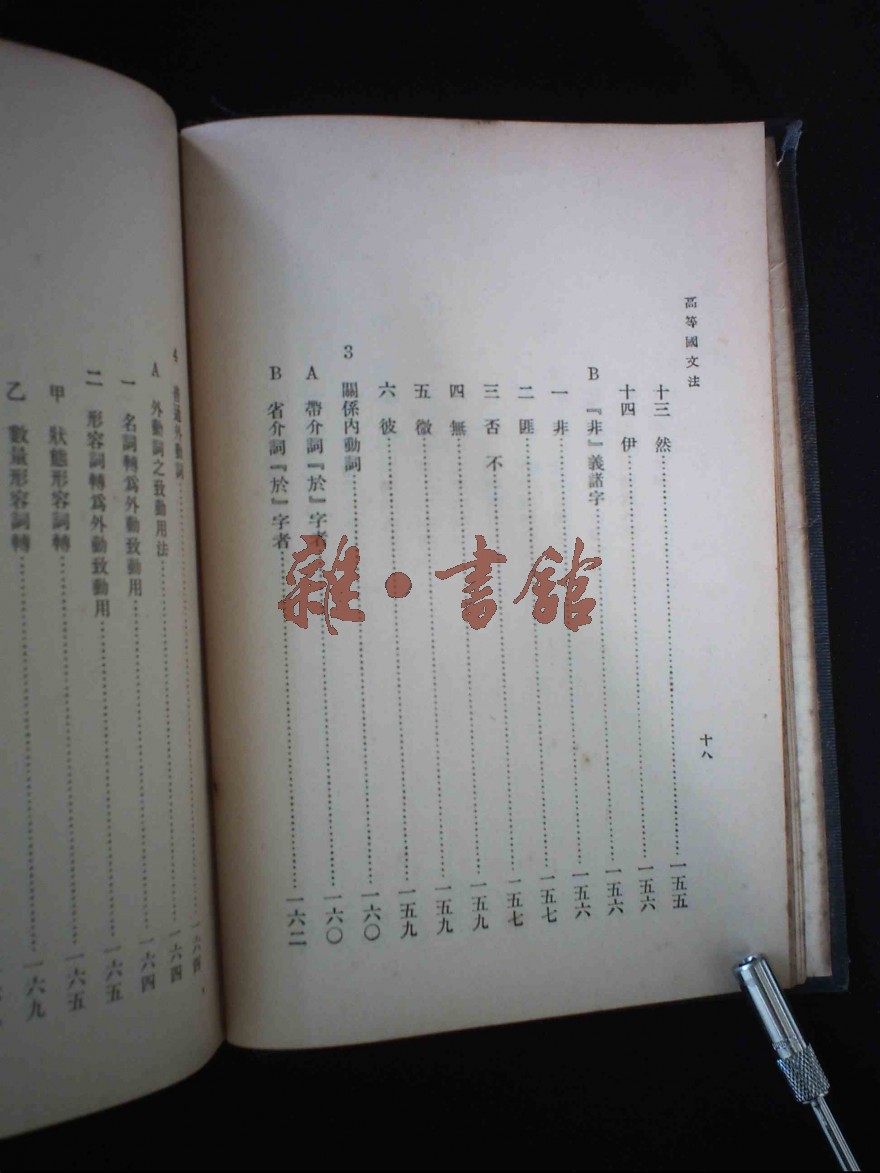 高等國文法
十三 然 一五五
十四 伊 一五六
B 『非』義諸字 一五六
一 非 一五六
二 匪 一五七
三 否 不 一五七
四 無 一五九
五 微 一五九
六 彼 一五九
3 關係內動詞 一六〇
A 帶介詞『於』字者 一六〇
B 省介詞『於』字者 一六二
十八
4 普通外動詞 一六四
A 外動詞之致動用法 一六四
一 名詞轉爲外動致動用 一六四
二 形容詞轉爲外動致動用 一六五
甲 狀態形容詞轉 一六五
乙 數量形容詞轉 一六九
雜·書館